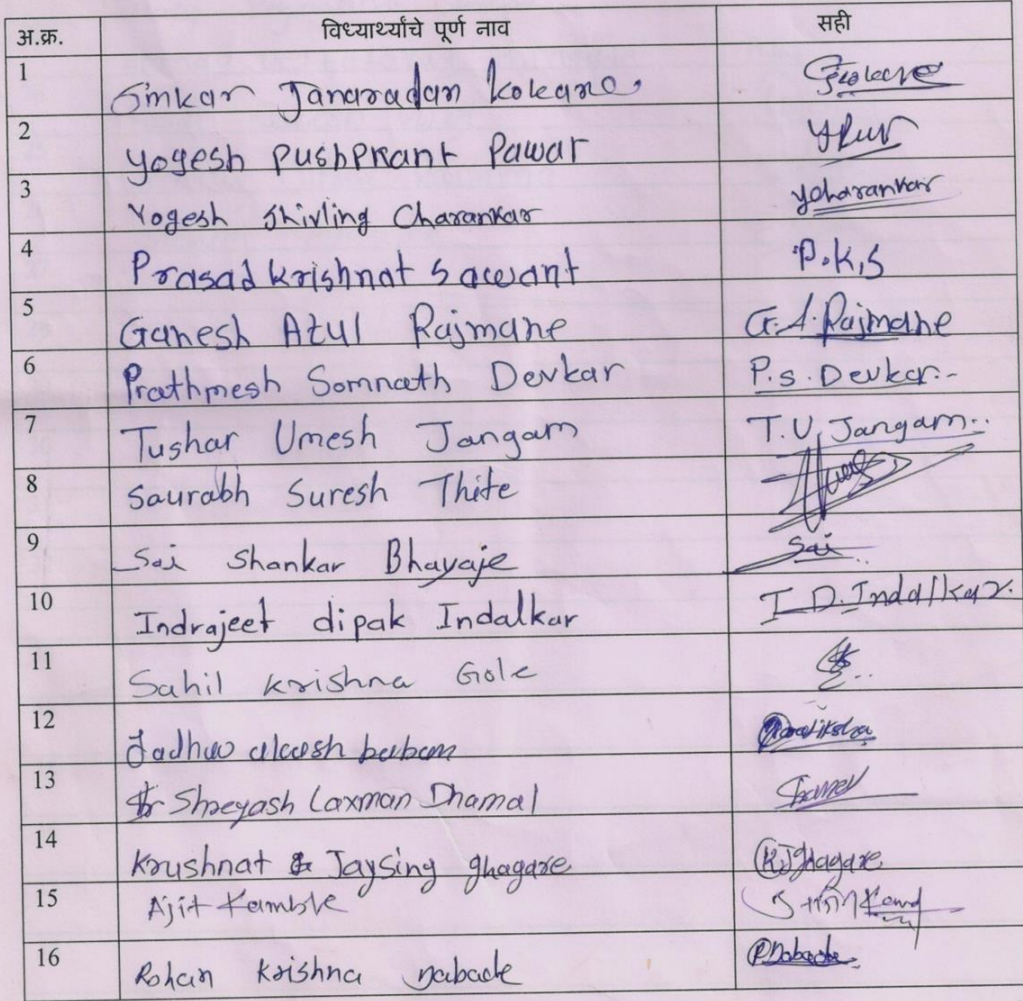 अ.क्र. विध्यार्थ्यांचे पूर्ण नाव सही
1 Omkar Janaradan Kokare
2 Yogesh Pushpkant Pawar
3 Yogesh Shivling Charankar ycharankar
4 Prasad krishnat Sawant P.K.S
5 Ganesh Atul Rajmane G.A. Rajmane
6 Prathmesh Somnath Devkar P.S. Devkar
7 Tushar Umesh Jangam T.U. Jangam
8 Saurabh Suresh Thite
9 Sai Shankar Bhayaje Sai
10 Indrajeet dipak Indalkar I.D. Indalkar
11 Sahil Krishna Gole
12 Jadhav babam
13 Shreyash Laxman Dhamal
14 Krushnat Jaysing ghagare K.J ghagare
15 Ajit Kamble
16 Rohan Krishna Dabade